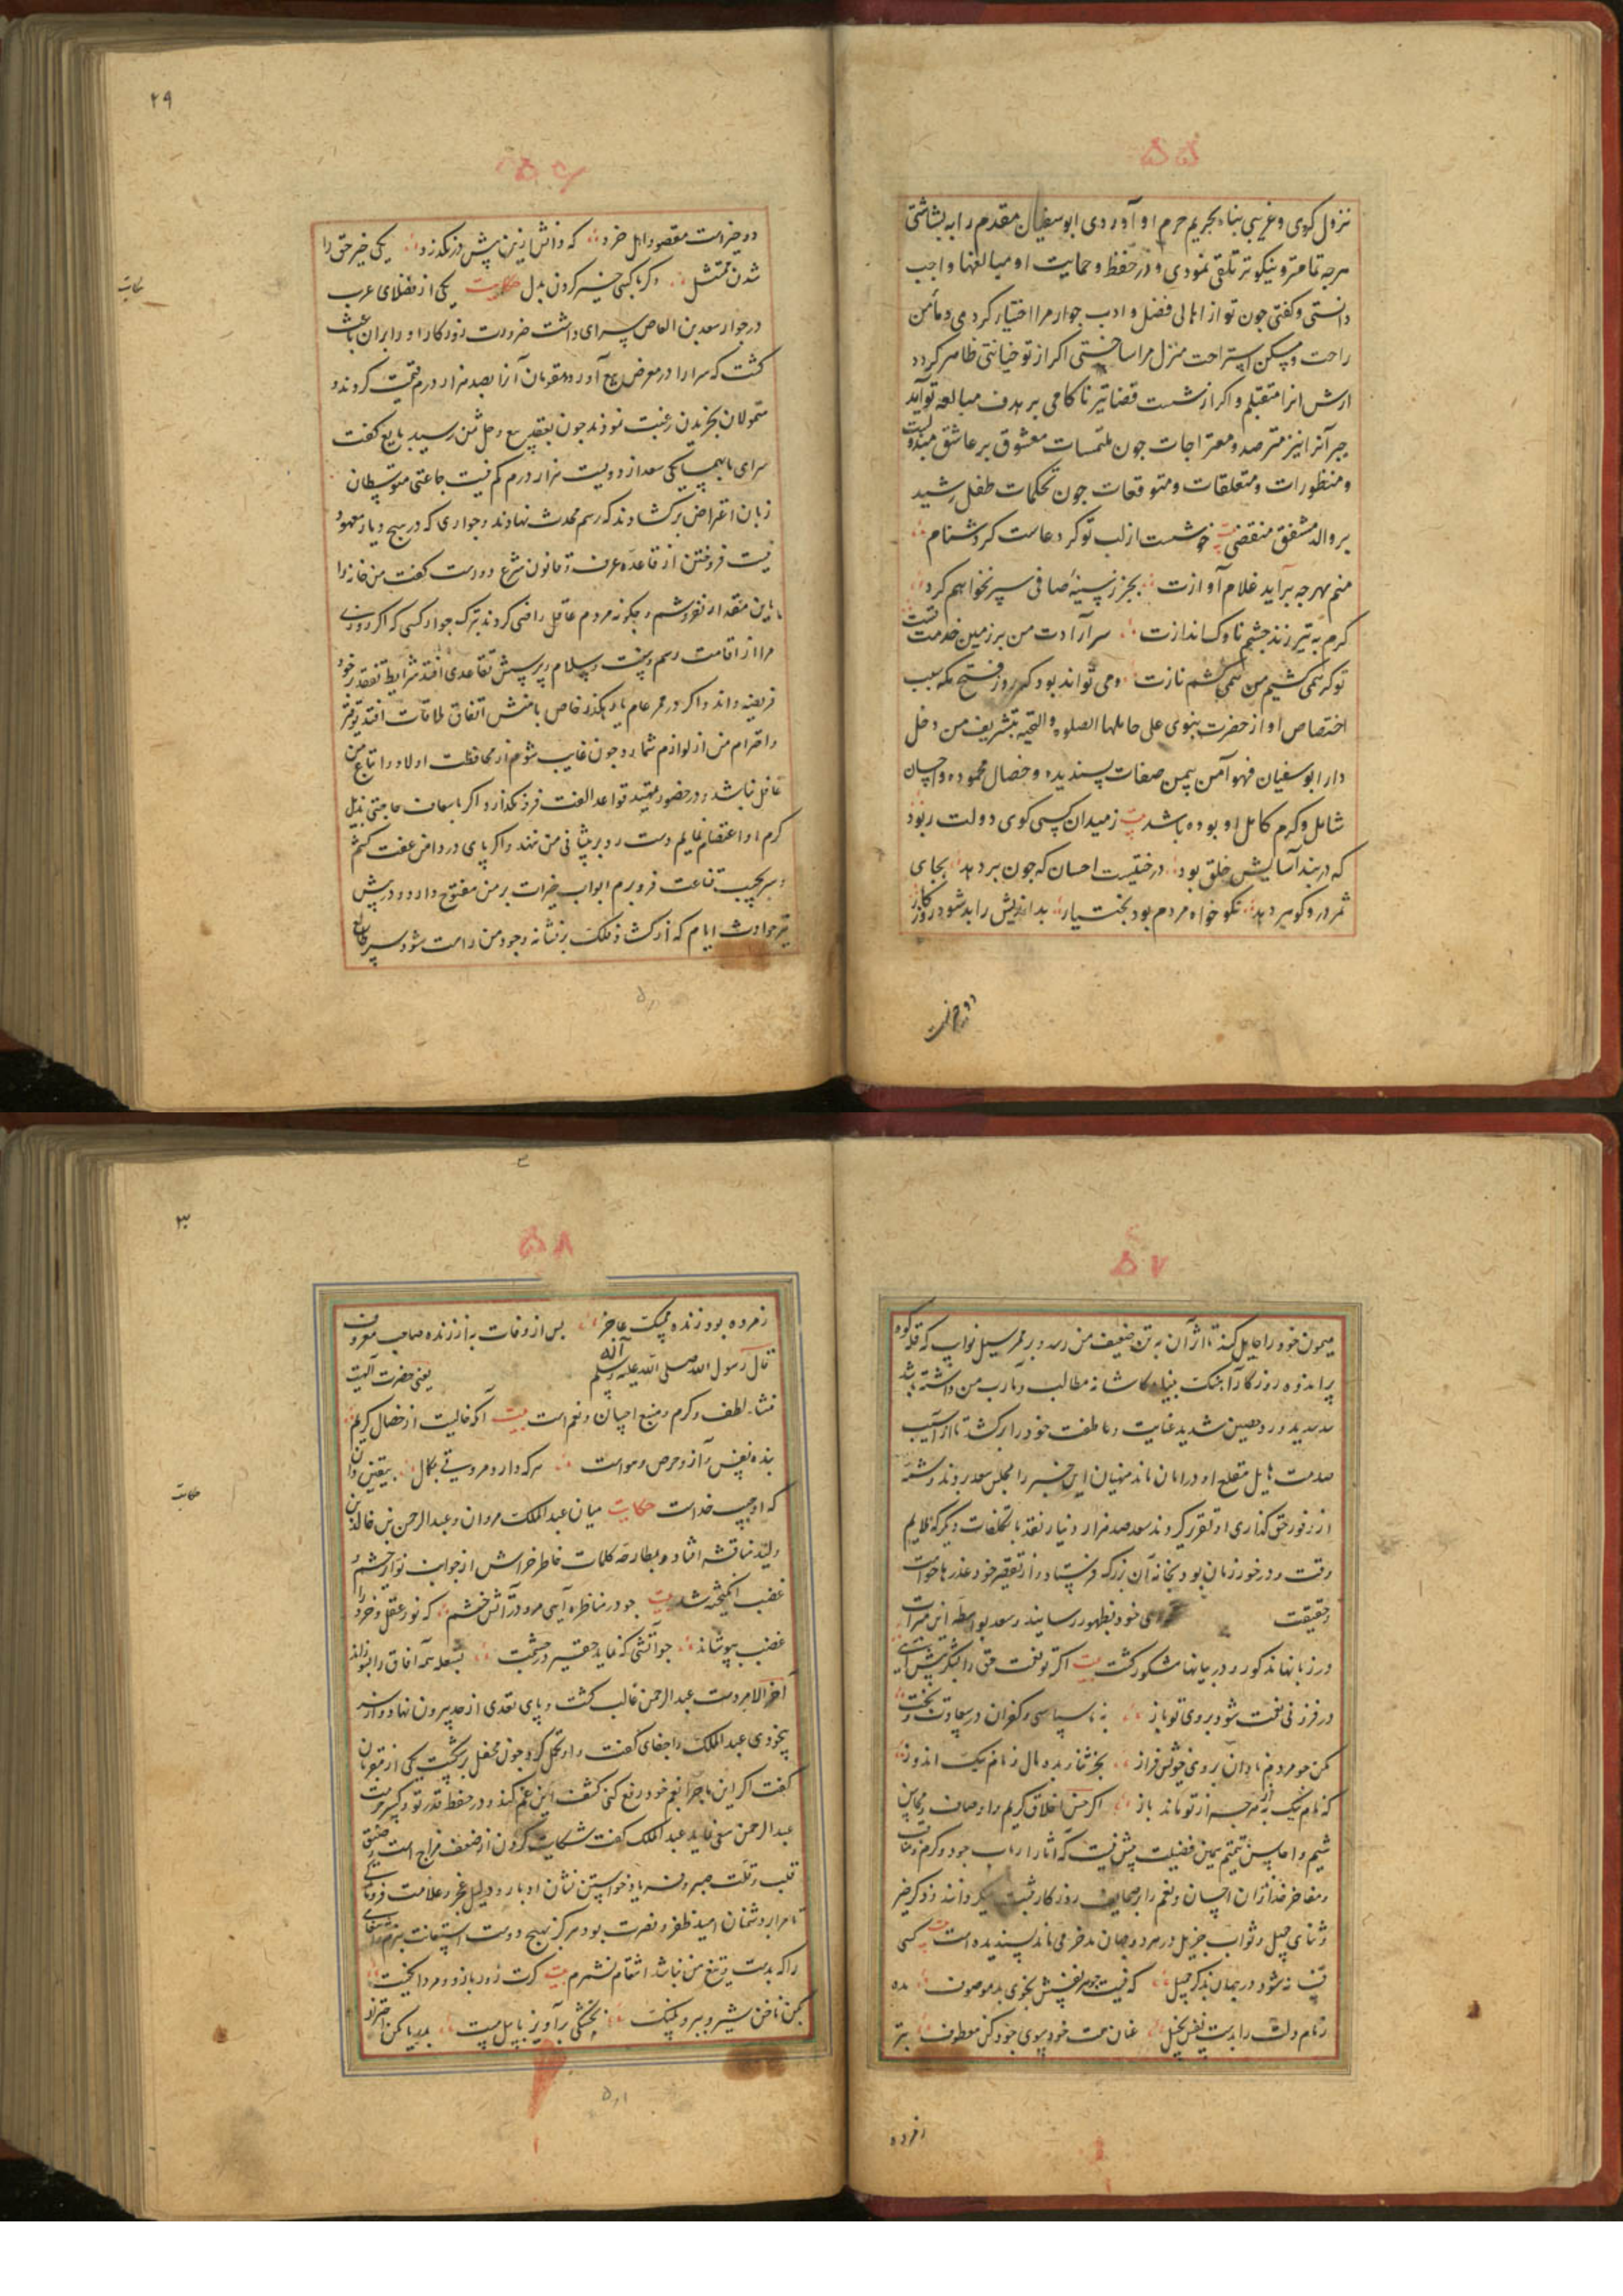 ۵۵
نزول کردی و غریبی پناه بحریم حرم او آوردی ابوسفیان مقدم را به بشاشتی
هرجه تمامتر و نیکوتر تلقی نمودی و در حفظ و حمایت او مبالغها واجب
دانستی و کفتی جون تو از اهالی فضل و ادب جوار مرا اختیار کردی و مأمن
راحت و مسکن استراحت منزل مرا ساختی اکر از تو خیانتی ظاهر کردد
ارش انرا متقبلم و اکر از شست قضا تیر ناکامی بر هدف مبالغه تو آید
جبر آنرا نیز مترصد و مقتراجات جون ملتمسات معشوق بر عاشق
و منظورات و متعلقات و متوقعات جون تحکمات طفل رشید
بر والد مشفق منقضی بیت خوشست از لب تو کر دعاست کر دشنام
منم بهرجه برآید غلام آوازت بجز ز سینهٔ صافی سپر نخواهم کرد
کرم به تیر زند جشم ناوک اندازت سر آرادت من بر زمین خدمت تست
تو کر نمی کشیم من نمی کشم نازت و می تواند بود که روز فتح مکه سبب
اختصاص او از حضرت نبوی علی حاملها الصلوه و التحیه بتشریف من دخل
دار ابوسفیان فهو آمن یمن صفات پسندیده و خصال محموده و احسان
شامل و کرم کامل او بوده باشد بیت ز میدان کسی کوی دولت ربود
که در بند آسایش خلق بود درختیست احسان که جون بر دهد بجای
ثمر در و کوهر دهد نکو خواه مردم بود بختیار بداندیش را بد شود روزکار
دو جیزست
۲۹
۵۶
دو جیزست مقصود اهل خرد که دانش ازین بیش در نکذرد یکی خیر حق را
شدن ممتثل دکر با کسی خیر کردن بدل حکایت یکی از فضلای عرب
حکایت
در جوار سعد بن العاص سرای داشت ضرورت روزکار او را بران باعث
کشت که سرا را در معرض بیع آورد و مقومان آنرا بصد هزار درم قیمت کردند و
متمولان بخریدن رغبت نمودند جون بعقد بیع و حل ثمن رسید بایع کفت
سرای با همسایکی سعد از دویست هزار درم کم نیست جماعتی متوسطان
زبان اعتراض برکشادند که رسم محدث نهادند و جواری که در هیج دیار معهود
نیست فروختن از قاعده عرف و قانون شرع دورست کفت من خانه را
باین مقدار نفروشم و جکونه مردم عاقل راضی کردند بترک جوار کسی که اکر روزی
مرا از اقامت رسم و سنت و سلام و پرسش تقاعدی افتد شرایط تفقد بر خود
فریضه داند و اکر در ممر عام یا رهکذر خاص با منش اتفاق ملاقات افتد توقیر
و احترام من از لوازم شمارد و جون غایب شوم از محافظت اولاد و اتباع من
غافل نباشد و در حضور تمهید قواعد الفت فرو نکذارد و اکر باسعاف حاجتی بذیل
کرم او اعتصام نمایم دست رد بر پیشانی من ننهد و اکر پای در دامن عفت کشم
و سر بجیب قناعت فرو برم ابواب خیرات بر من مفتوح دارد و در پیش
تیر حوادث ایام که از کشاد فلک بر نشانه وجود من راست شود سپر
۵۷
میمون خود را حایل کند تا اثر آن به تن ضعیف من نرسد و بر ممر سیل نوایب که قله کوه
بر اندازد و روزکار آهنک بنیاد کاشانه مطالب و مآرب من داشته باشد
سد سدید و حصین شدید عنایت و عاطفت خود را برکشد تا از آسیب
صدمت هایل متقلع او در امان ماند منهیان این خبر را بمجلس سعد بردند و شمهٔ
از وفور حق کذاری او تقریر کردند سعد صد هزار دینار نقد با تکلفات دیکر که ملایم
وقت و در خور زمان بود بخانه آن بزرک فرستاد و از تقصیر خود عذرها خواست
و حقیقت خود بظهور رسانید و سعد بواسطه این مبرات
در زبانها مذکور و در بیانها مشکور کشت بیت اکر تو نعمت حق را بشکر پیش آیی
در فزونی نعمت شود بروی تو باز به ناسپاسی و کفران در سعادت و بخت
مکن جو مردم نادان بروی خویش فراز بخر ثنا و بده مال و نام نیک اندوز
که نام نیک به از هرجه از تو ماند باز اکر حسن اخلاق کریم را و صاف و محاسن
شیم و احاسن تیمتم بمین فضیلت بیش نیست که آثار ارباب جود و کرم و مناقب
و مفاخر خداوندان احسان و نعم را بر صحایف روزکار ثبت میکردانند و ذکر خیر
و ثنای جمیل و ثواب جزیل در هر دو جهان مدخر می ماند پسندیده است بیت کسی
فسانه شود در جهان بذکر جمیل که نیست جوهر نفسش بخوی بد موصوف مده
زمام دولت را بدست نفس بخیل عنان همت خود سوی جود کن معطوف بتر
ز مرده
۳۰
۵۸
ز مرده بود زنده ممسک عاجز پس از وفات به از زنده صاحب معروف
قال رسول الله صلی الله علیه و آله وسلم یعنی حضرت الهیت
منشاء لطف و کرم و منبع احسان و نعم است بیت آنکه خالیست از خصال کریم
بنده نفس و آز و حرص و هواست هرکه دارد مروتی بکمال بیقین دان
که او حبیب خداست حکایت میان عبدالملک مروان و عبدالرحمن بن خالد بن
حکایت
ولید مناقشه افتاد و بمطارحه کلمات خاطر خراش از جوانب نوایر خشم و
غضب انکیخته شد بیت جو در مناظره آیی مرو در آتش خشم که نور عقل و خرد را
غضب بپوشاند جو آتشی که نماید حقیر در جشمت بشعله همه آفاق را بسوزاند
آخر الامر دست عبدالرحمن غالب کشت و پای تعدی از حد بیرون نهاد و از سر
بیخودی عبدالملک را جفای کفت و او تحمل کرد جون محفل برشکست یکی از مقربان
کفت اکر این ماجرا بعم خود رفع کنی کشف این غم کند و در حفظ قدر تو و کسر حرمت
عبدالرحمن سعی نماید عبدالملک کفت شکایت کردن از ضعف مزاج است و ضیق
قلب و قلت صبر و فریاد خواستن نشان ادبار و دلیل عجز و علامت فروماندکی
تا مرا بر دشمنان امید ظفر و نصرت بود هرکز بهیج دوست استعانت نبرم
را که بدست و تیغ من نباشد انتقام نشمرم بیت کرت زور بازو و مردانکیست
بکن ناخن شیر و ببر و پلنک بخشکی برآویز با پیل مست بدریا مکن احتراز